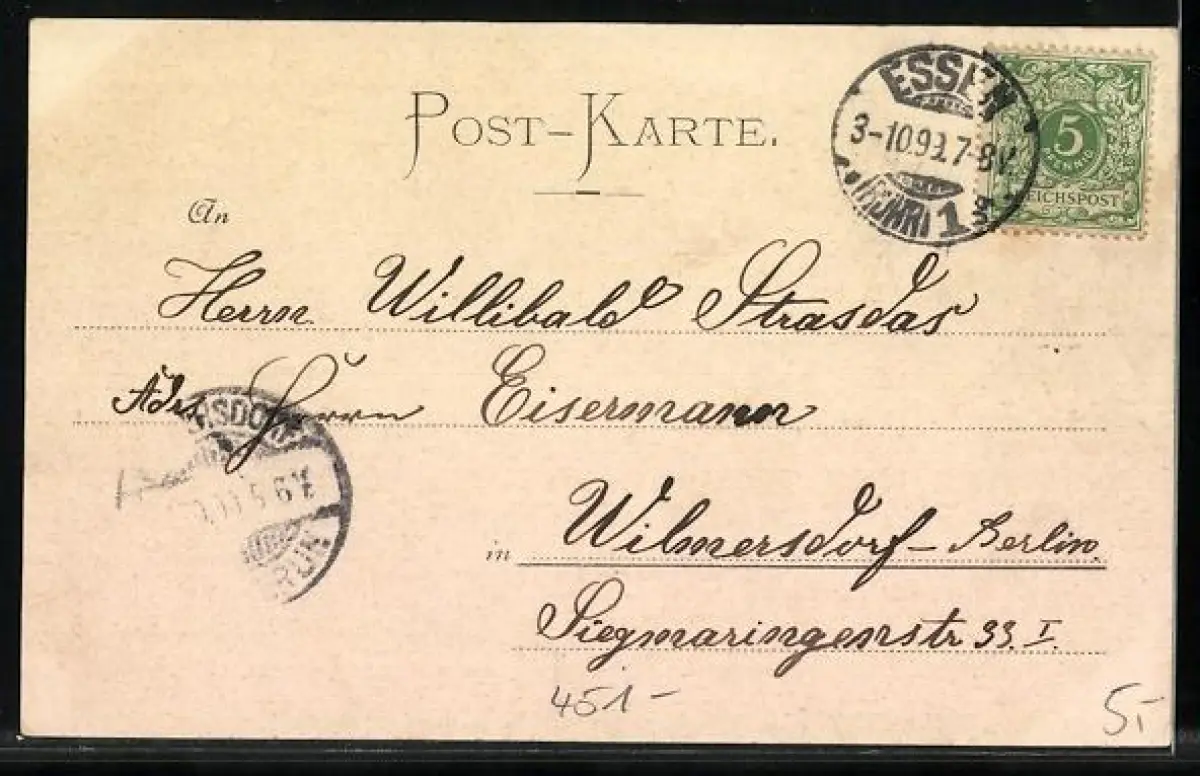 POST-KARTE.
ESSEN
3-10.99.7-8V.
(RUHR) 1
5
PFENNIG
REICHSPOST
An
Herrn Willibald Strasdas
Adr. Herrn Eisermann
in Wilmersdorf-Berlin.
Siegmaringenstr 33. I.
451-
5,-